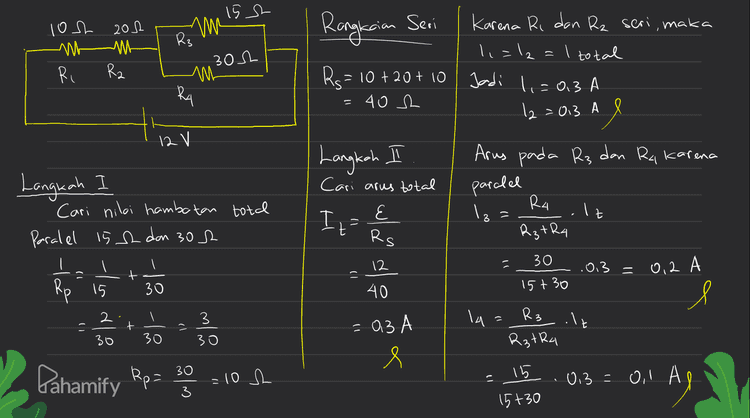 10 Ω 20 Ω
15 Ω
R3
30 Ω
R1 R2
R4
12 V
Langkah I
Cari nilai hambatan total
Paralel 15 Ω dan 30 Ω
1/Rp = 1/15 + 1/30
= 2/30 + 1/30 = 3/30
Rp = 30/3 = 10 Ω
Pahamify
Rangkaian Seri
Rs = 10 + 20 + 10
= 40 Ω
Langkah II
Cari arus total
It = ε/Rs
= 12/40
= 0,3 A
Karena R1 dan R2 seri, maka
I1 = I2 = I total
Jadi I1 = 0,3 A
I2 = 0,3 A
Arus pada R3 dan R4 karena
paralel
I3 = R4/R3+R4 . It
= 30/15+30 . 0,3 = 0,2 A
I4 = R3/R3+R4 . It
= 15/15+30 . 0,3 = 0,1 A